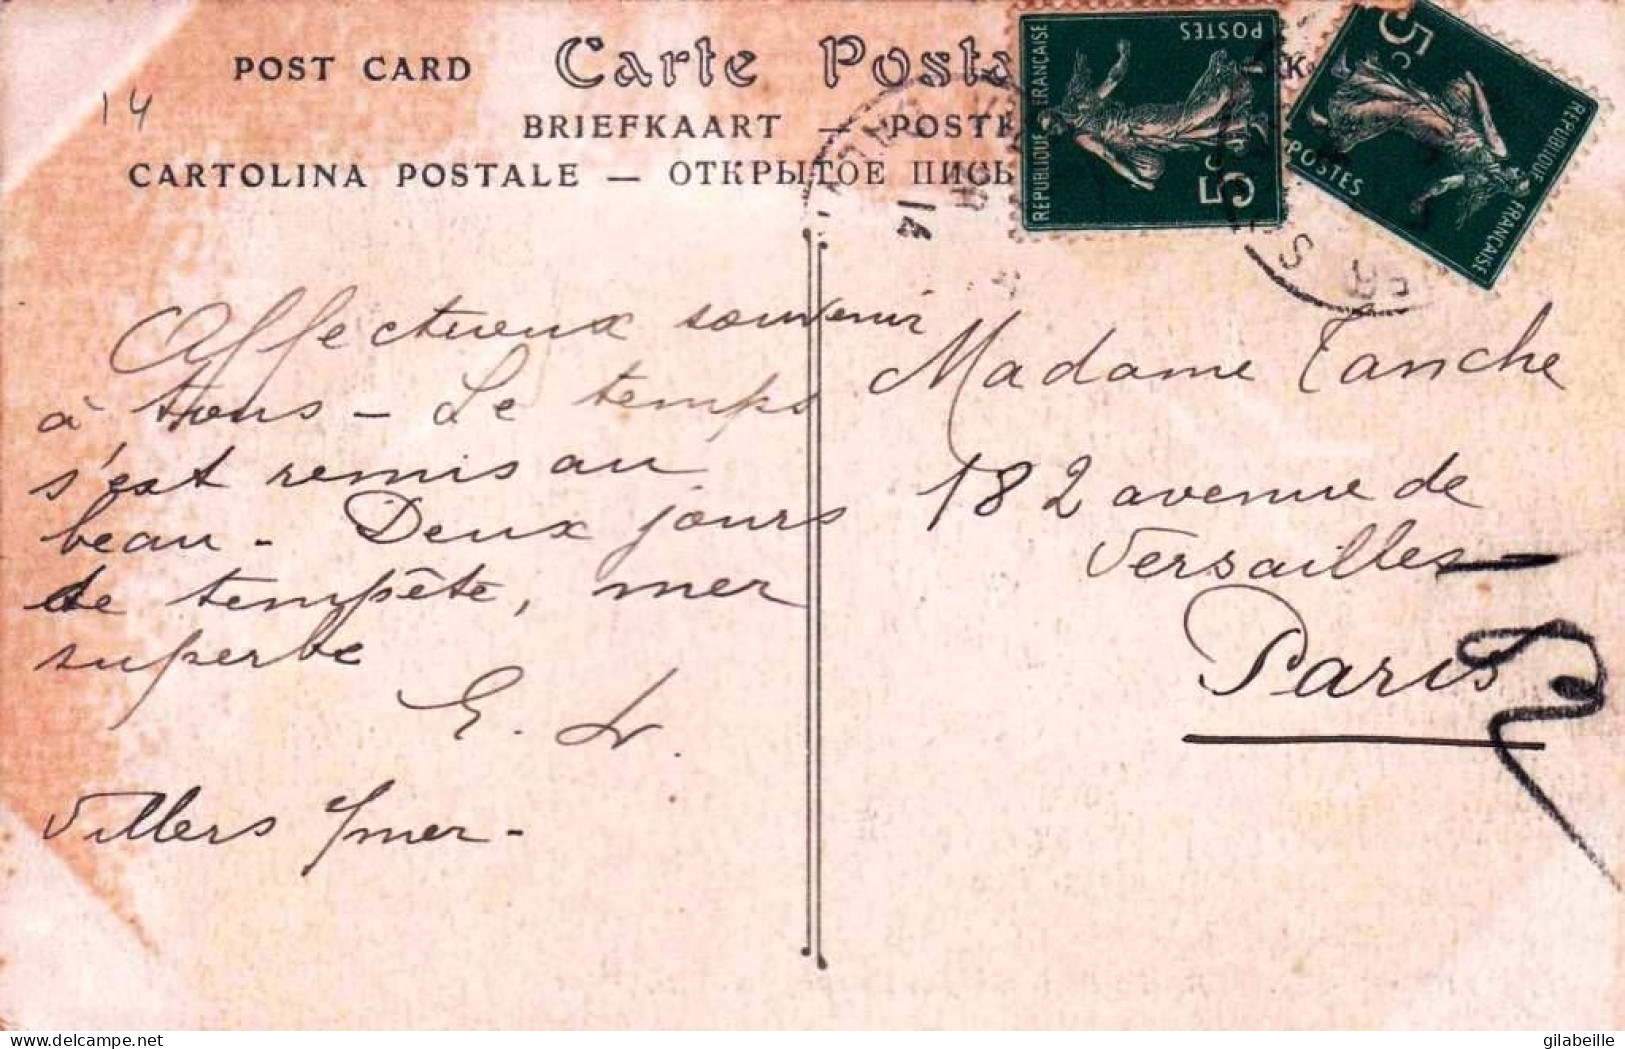 POST CARD Carte Posta
14
BRIEFKAART — POSTK
CARTOLINA POSTALE — ОТКРЫТОЕ ПИСЬ
RÉPUBLIQUE FRANÇAISE
POSTES
5c
RÉPUBLIQUE FRANÇAISE
POSTES
5c
14
Affectueux souvenir
à tous — Le temps
s'est remis au
beau - Deux jours
de tempête, mer
superbe
E. W.
Villers s/mer -
Madame Tanche
182 avenue de
Versailles -
Paris
delcampe.net
gilabeille